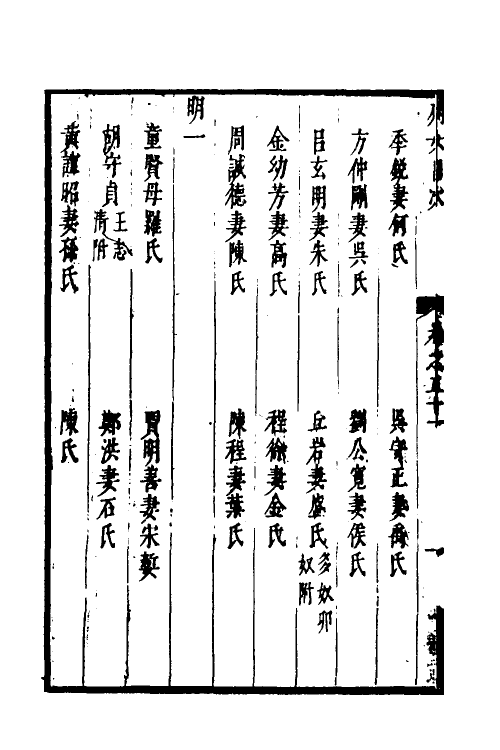 列女目次
卷之五十一
李銳妻何氏
吳守正妻禹氏
方仲剛妻吳氏
劉公寬妻侯氏
呂玄明妻朱氏
丘岩妻盛氏 多奴卯奴附
金幼芳妻高氏
程徐妻金氏
周誠德妻陳氏
陳程妻葉氏
明一
童賢母羅氏
賈明善妻宋氏
胡守貞 王志清附
鄭洪妻石氏
黃諱昭妻孫氏
陳氏